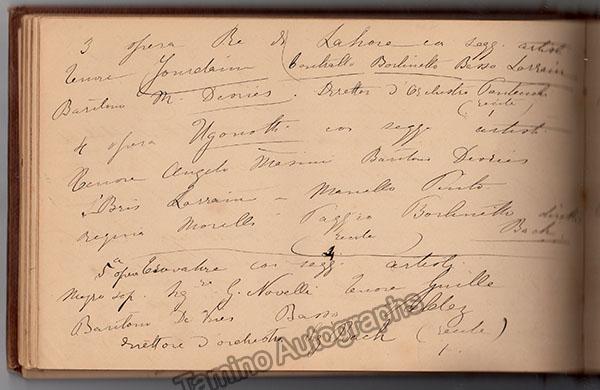 3 opera Re di Lahore co segg. artisti
Tenore Jourdain Contralto Bortinello Basso Lorrain
Baritono M. Devries. Direttor d'Orchestro
(recite
4 opera Ugonotti co segg. artisti
Tenore Angelo Masini Baritono Devries
S. Bris Lorrain = Marcello Pinto
Regina Morelli Paggio Bortinelli dirett
(recite) Bach
5ª opera Trovatore co segg. artisti
Mezzo sop. G. Novelli Tenore Guille
Baritono De Vries Basso Lopez
Direttore d'orchestra Bach (recite)
Tamino Autographs